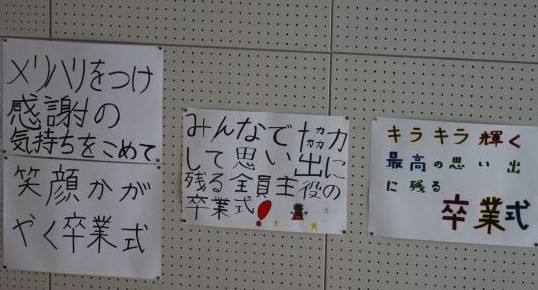 メリハリをつけ
感謝の
気持ちをこめて
笑顔かが
やく卒業式
みんなで協力
して思い出に
残る全員主役の
卒業式!
キラキラ輝く
最高の思い出
に残る
卒業式